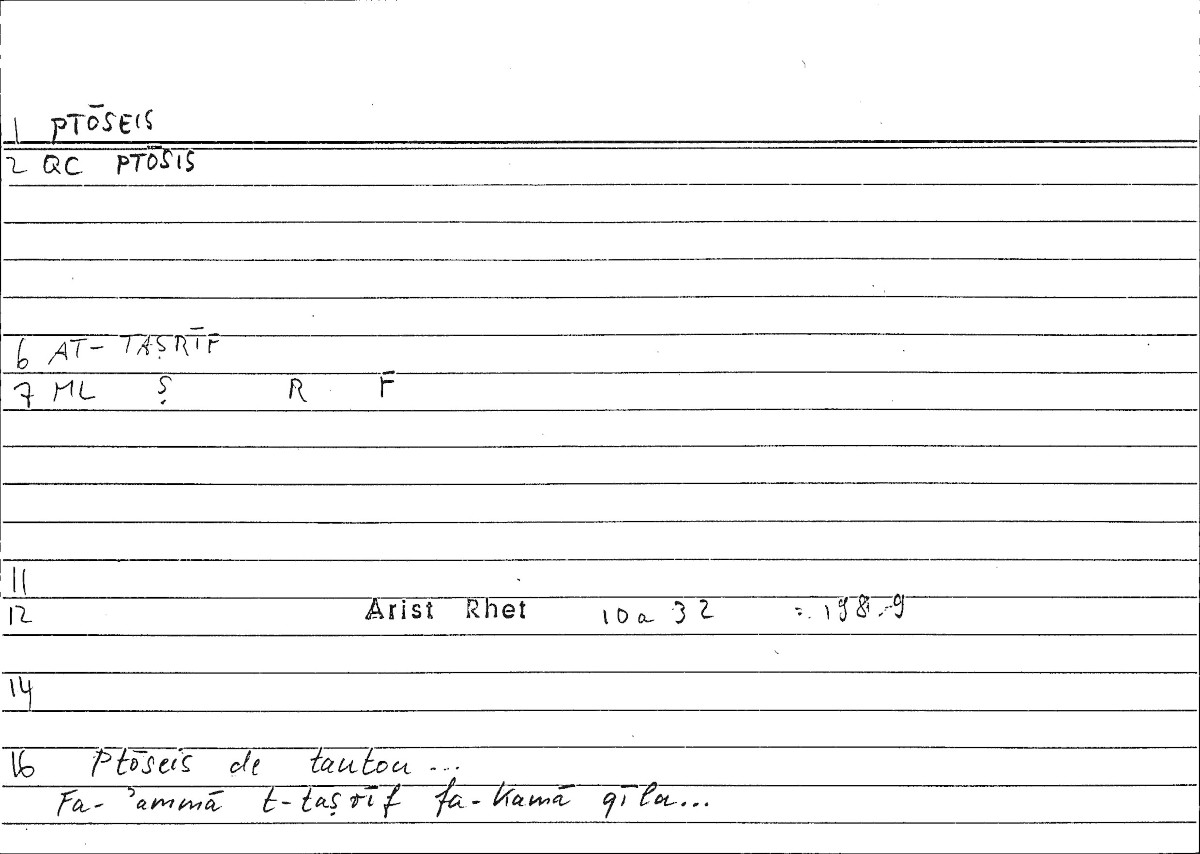 1 PTŌSEIS
2 QC PTŌSIS
6 AT-TAṢRĪF
7 ML Ṣ R F
11
12 Arist Rhet 10a 32 = 198.9
14
16 Ptōseis de tautou ...
Fa-ʾammā t-taṣrīf fa-kamā qīla...